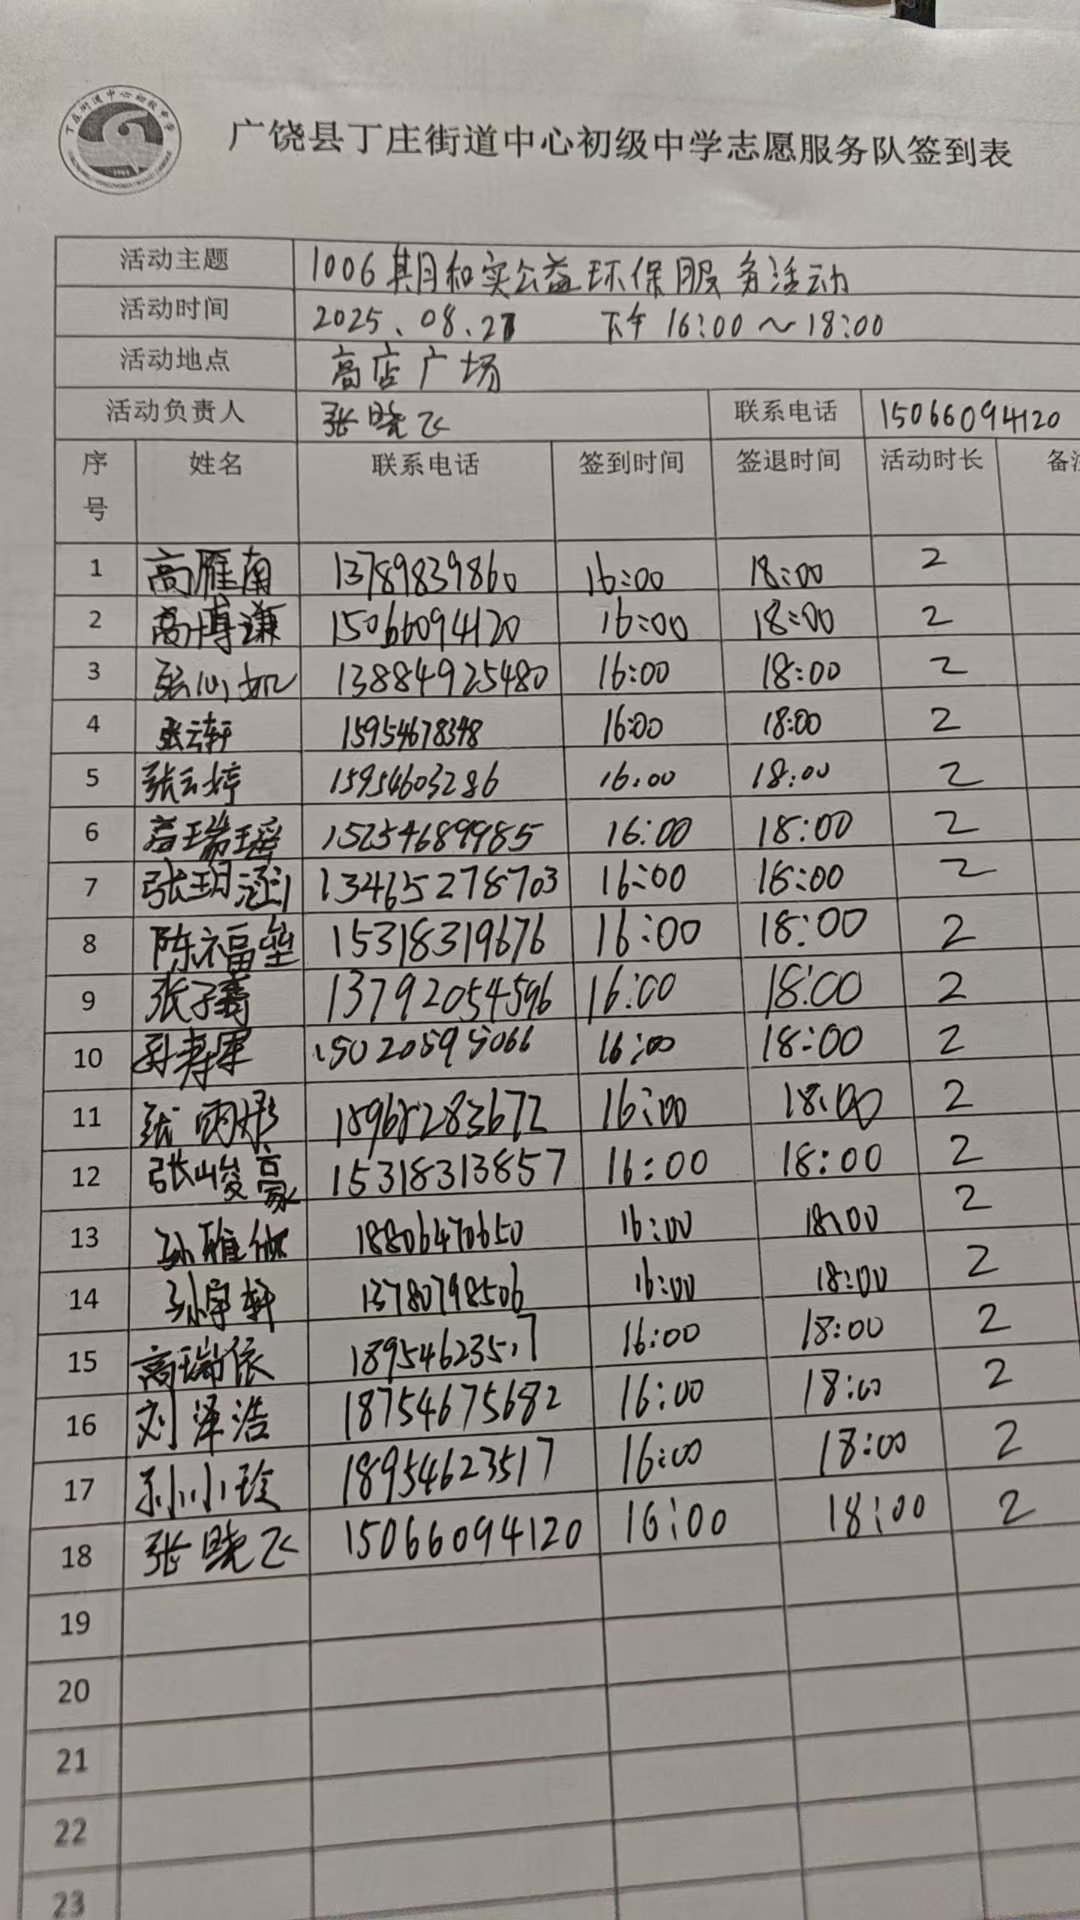 广饶县丁庄街道中心初级中学志愿服务队签到表
活动主题 1006期和实公益环保服务活动
活动时间 2025.08.27 下午16:00～18:00
活动地点 高店广场
活动负责人 张晓飞 联系电话 15066094120
序号 姓名 联系电话 签到时间 签退时间 活动时长 备注
1 高雁南 13789839860 16:00 18:00 2
2 高博谦 15066094120 16:00 18:00 2
3 张仙如 13884925480 16:00 18:00 2
4 张云轩 15954678348 16:00 18:00 2
5 张云婷 15954603286 16:00 18:00 2
6 高瑞瑶 15254689985 16:00 18:00 2
7 张玥涵 13465278703 16:00 18:00 2
8 陈福垒 15318319676 16:00 18:00 2
9 张子涛 13792054596 16:00 18:00 2
10 孙寿军 15020595066 16:00 18:00 2
11 张明彤 15968283672 16:00 18:00 2
12 张峻豪 15318313857 16:00 18:00 2
13 孙雅欣 18806470650 16:00 18:00 2
14 孙宇轩 13780798506 16:00 18:00 2
15 高瑞依 18954623517 16:00 18:00 2
16 刘泽浩 18754675682 16:00 18:00 2
17 孙小玲 18954623517 16:00 18:00 2
18 张晓飞 15066094120 16:00 18:00 2
19
20
21
22
23